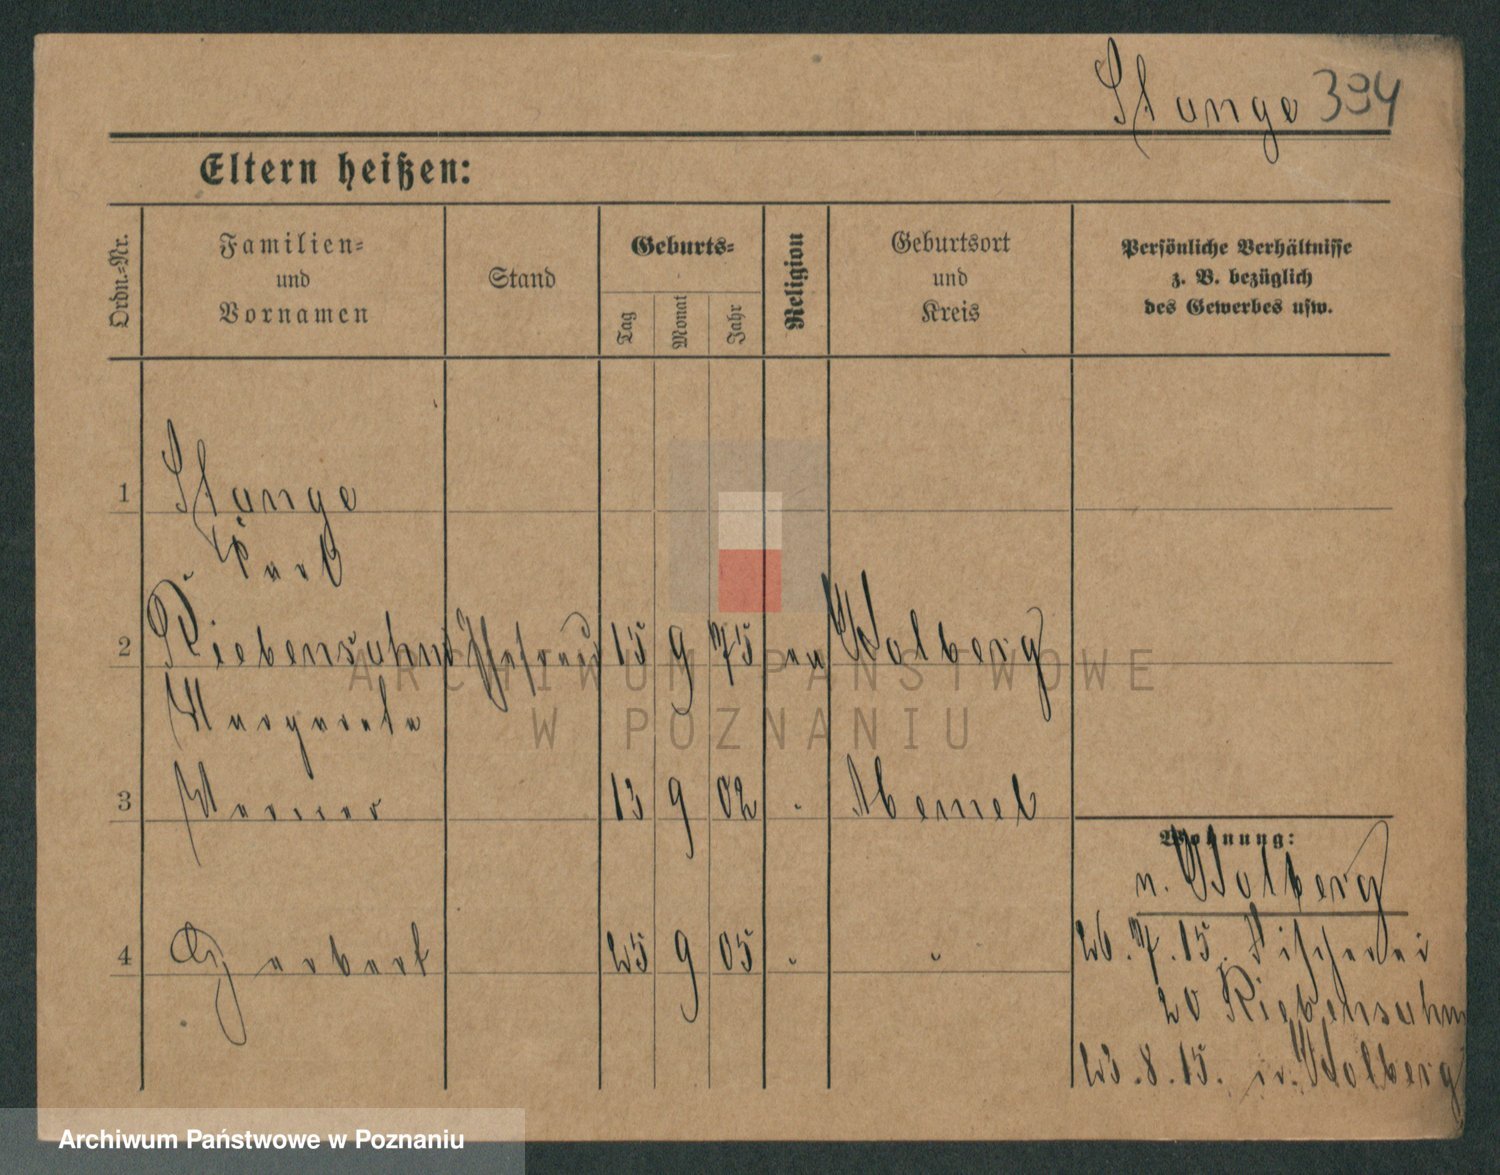 Stange 394
Eltern heißen:
Ordn.-Nr.
Familien-
und
Vornamen
Stand
Geburts-
Tag
Monat
Jahr
Religion
Geburtsort
und
Kreis
Persönliche Verhältnisse
z. B. bezüglich
des Gewerbes usw.
1 Stange
Karl
2 Riebensahm Ehefrau 15 9 75 ev Kolberg
Margarete
3 Werner 13 9 02 " Memel
4 Herbert 25 9 05 " "
Wohnung:
n. Kolberg
26.7.15. Fischerei
20 Riebensahm
23.8.15. n. Kolberg
ARCHIWUM PAŃSTWOWE
W POZNANIU
Archiwum Państwowe w Poznaniu